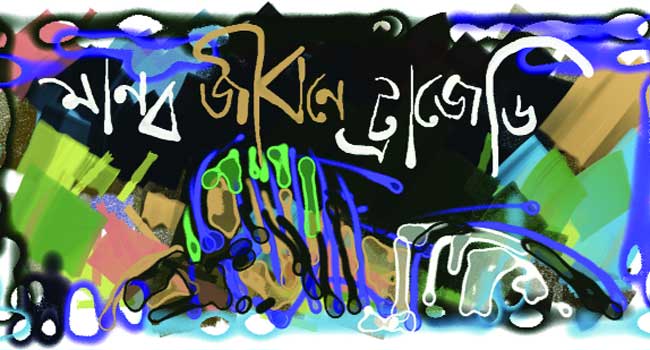 মানব জীবনে ট্রাজেডি